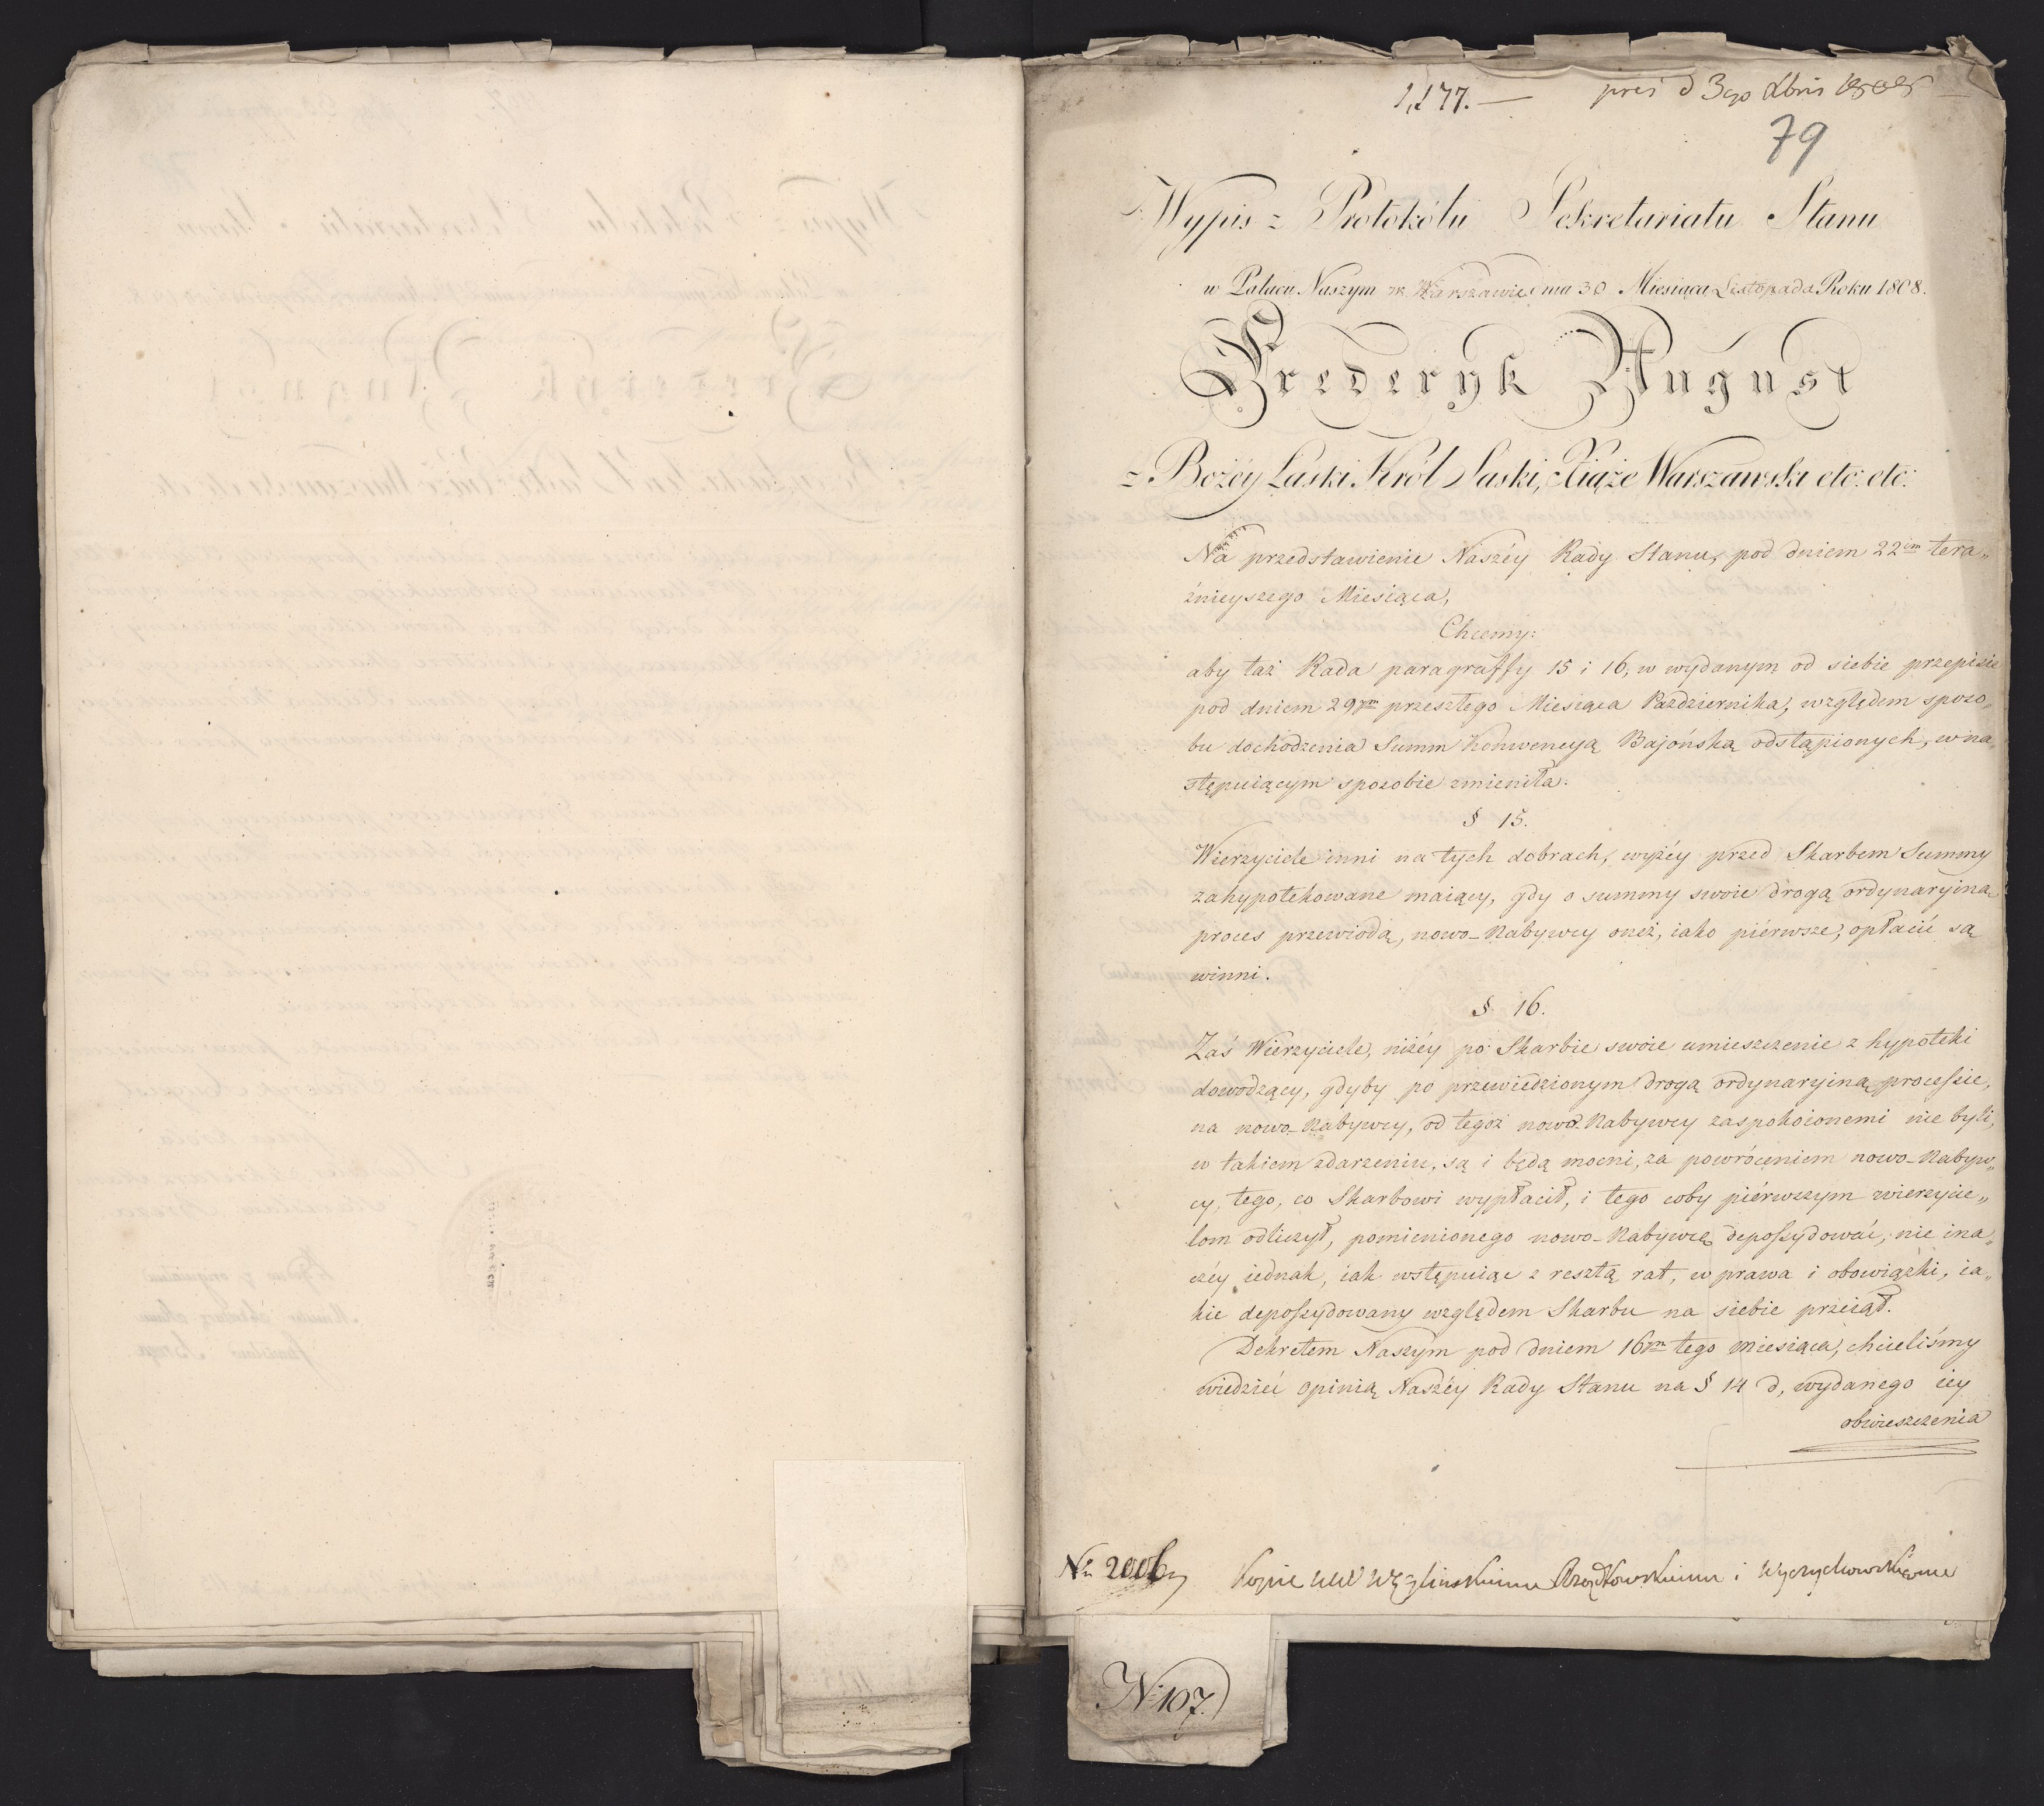 1,177. — pres d 3go Xbris 1808
79
Wypis z Protokółu Sekretariatu Stanu
w Pałacu Naszym w Warszawie dnia 30 Miesiąca Listopada Roku 1808.
Frederyk August
z Bożéy Łaski Król Saski, Xiąże Warszawski etc: etc:
Na przedstawienie Naszéy Rady Stanu, pod dniem 22im tera„
źnieyszego Miesiąca,
Chcemy:
aby taż Rada paragraffy 15 i 16, w wydanym od siebie przepisie
pod dniem 29ym przeszłego Miesiąca Października, względem sposo„
bu dochodzenia Summ Konwencyą Bajońską odstąpionych, w na„
stępuiącym sposobie zmieniła.
§ 15.
Wierzyciele inni na tych dobrach, wyżéy przed Skarbem Summy
zahypotekowane maiący, gdy o summy swoie drogą ordynaryiną
proces przewiodą, nowo-Nabywcy oneż, iako piérwsze, opłacić są
winni.
§ 16.
Zaś Wierzyciele, niżéy po Skarbie swoie umieszczenie z hypoteki
dowodzący, gdyby po przewiedzionym drogą ordynaryiną processie,
na nowo-Nabywcy, od tegoż nowo-Nabywcy zaspokoionemi nie byli,
w takiem zdarzeniu, są i będą mocni, za powróceniem nowo-Nabyw„
cy, tego, co Skarbowi wypłacił, i tego coby piérwszym wierzycie„
lom odliczył, pomienionego nowo-Nabywcę depossydować, nie ina„
czéy iednak, iak wstępuiąc z resztą rat, w prawa i obowiązki, ia„
kie depossydowany względem Skarbu na siebie przeiął.
Dekretem Naszym pod dniem 16ym tego miesiąca, chcieliśmy
wiedzieć opinią Naszéy Rady Stanu na § 14 d, wydanego iéy
obwieszczenia
Nr 2006
Kopie Węglinskiemu i Wyczechowskiemu
N: 107.